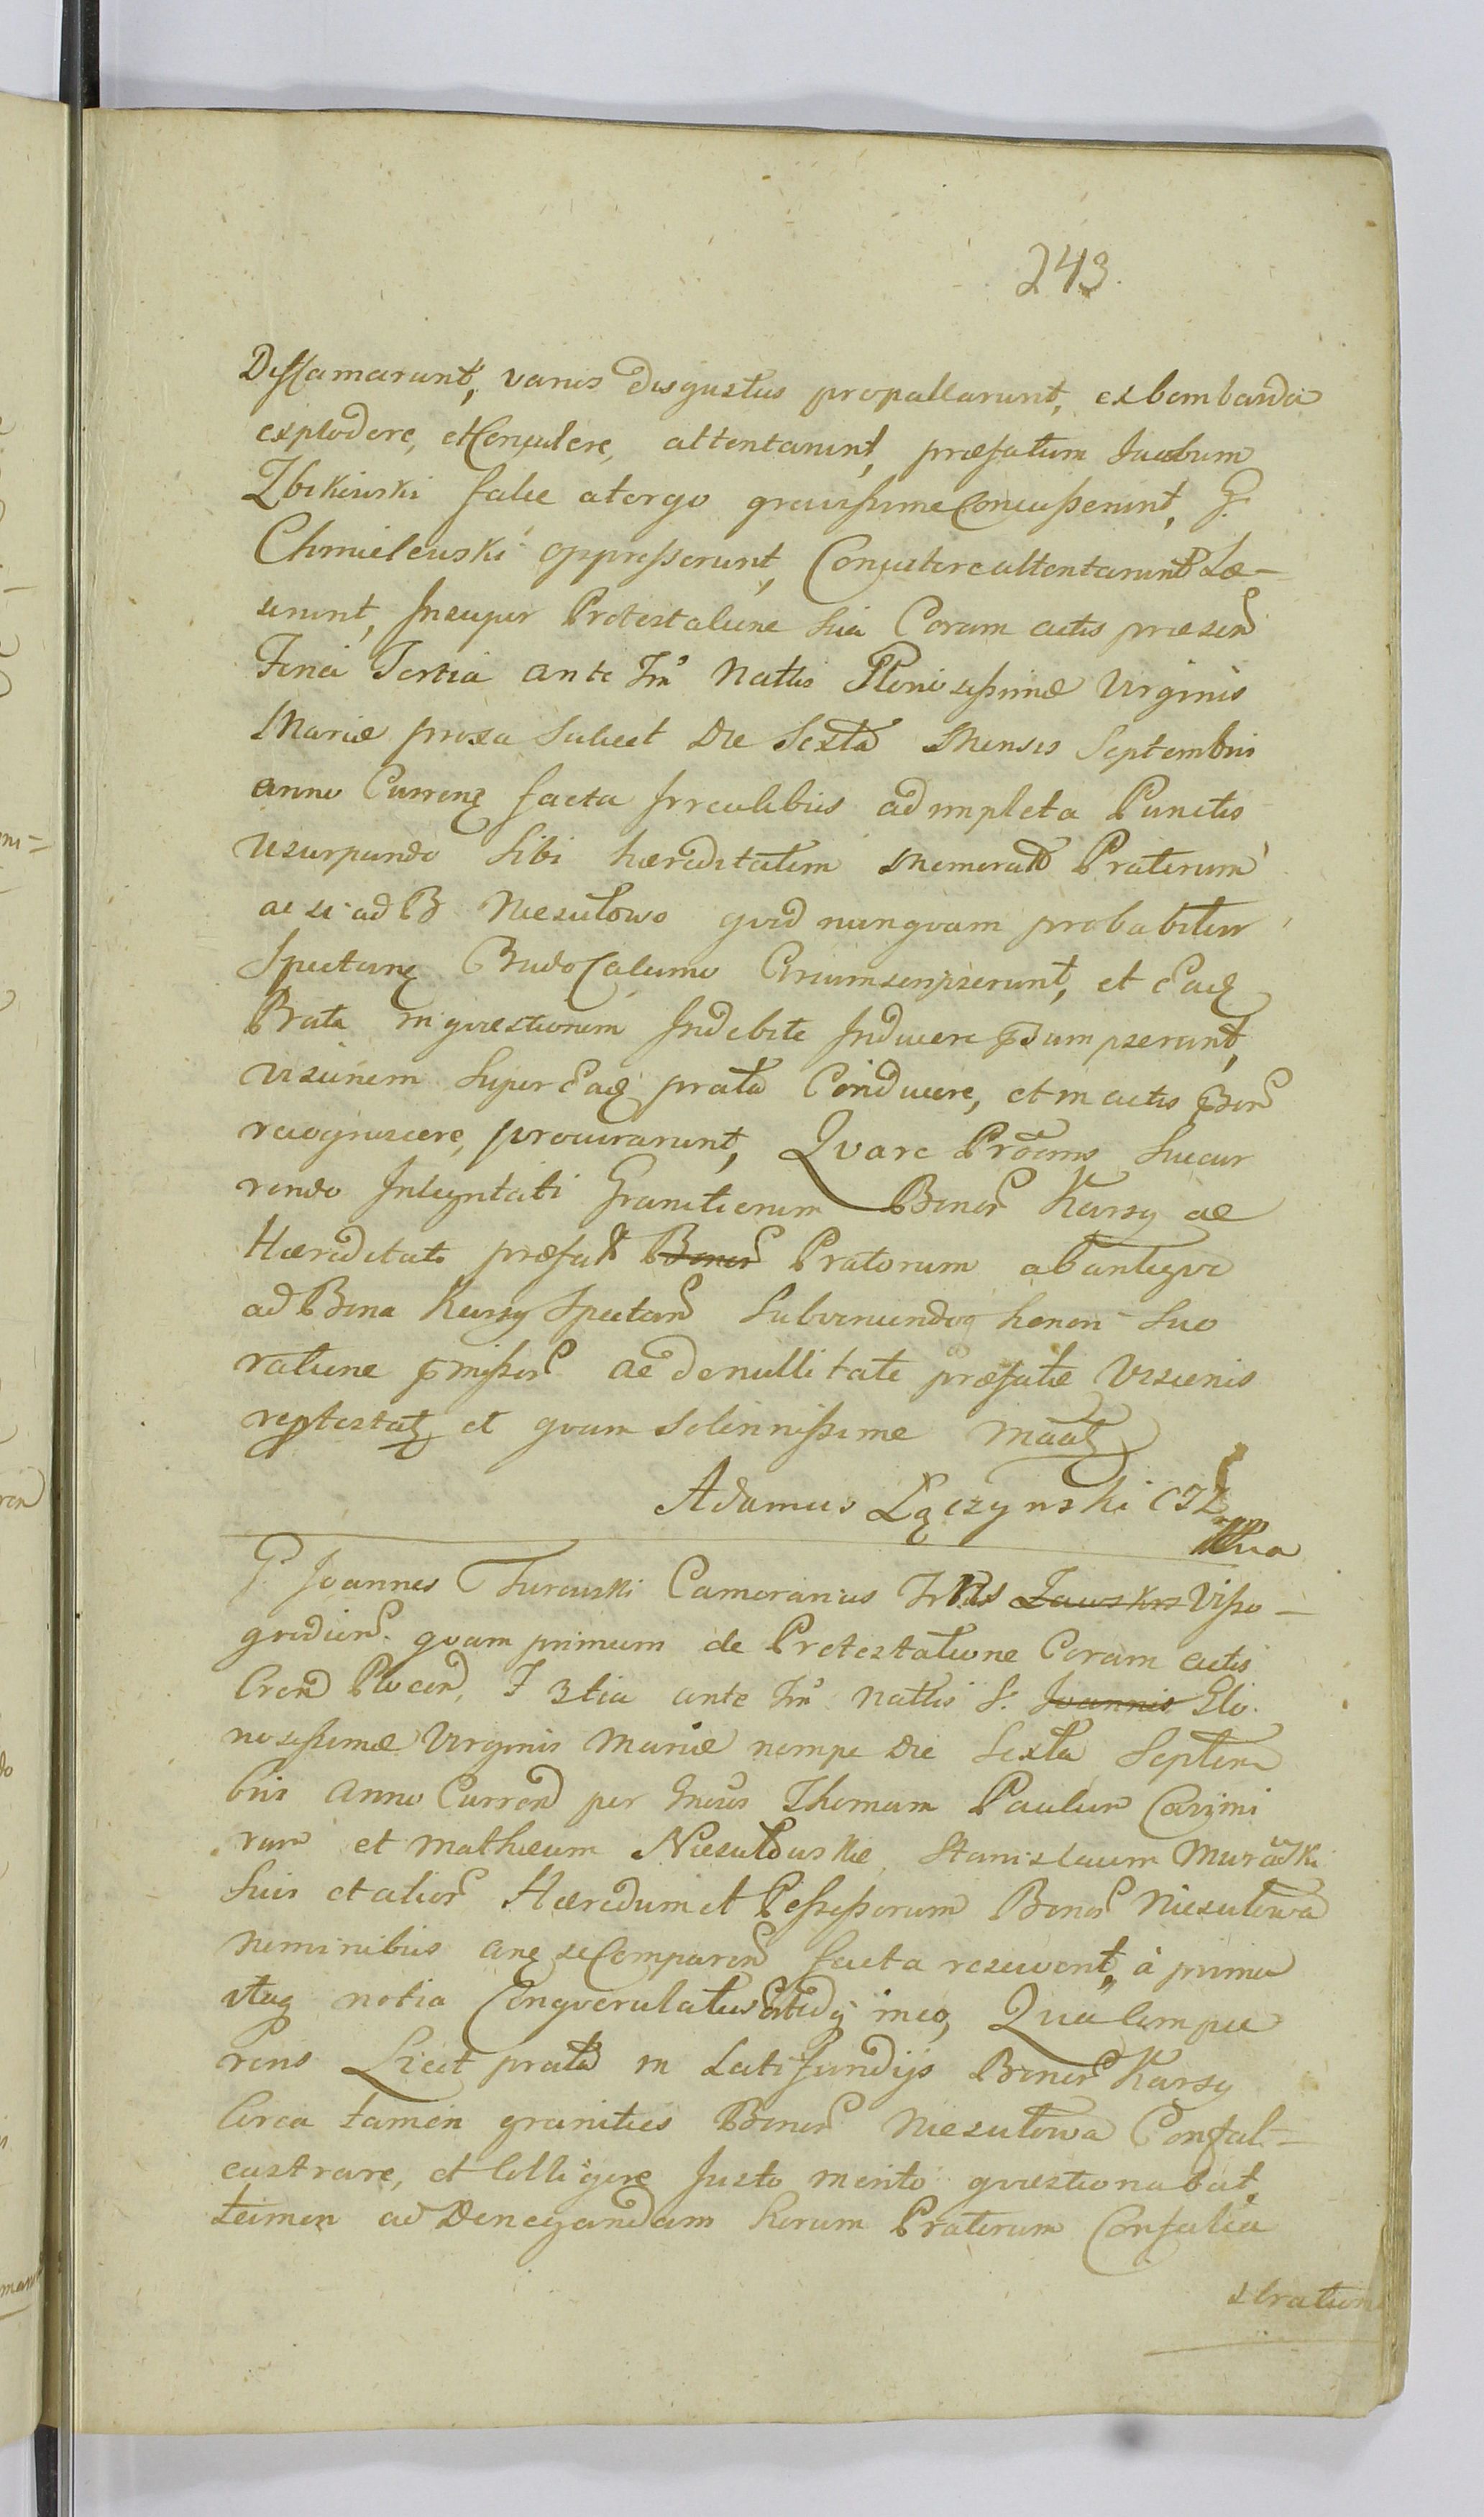 243.
Diffamarunt, varios disgustus propallarunt, ex bombarda
explodere, et Conculere, attentarunt, præfatum Jacobum
Zbikiewski falce atergo gravissime Concusserunt, G.
Chmielewski oppresserunt, Concutere attentarunt Læ-
serunt, Insuper Protestatione Sua Coram actis præsen
Feria Tertia ante Fm Nattis Gloriosissimæ Virginis
Mariæ proxa Scilicet Die Sexta Mensis Septembris
anno Curren facta Irrealibus adimpleta Punctis
Usurpando Sibi hæreditatem Memorat Pratorum
ac si ad B Niesułowo qvod nunqvam probabitur
Spectan Calumo Circumscripserunt, et Eaq
Prata in qvæstionem Indebite Inducere Præsumpserunt,
Visionem Super Eaq prata Conducere, et in actis
recognoscere, procurarunt, Qvare Protans Sucur
rendo Integritati Granitierum Bonor Karsy ac
Hæreditati præfat Bonor Pratorum ab antiqvo
ad Bona Karsy Spectan Subveniendoq honori Suo
ratione pmissor ac de nullitate præfatæ Visionis
reptestat et qvam Solennissime maat
Adamus Łączynski CSZ
G. Joannes Turowski Camerarius Trris Zawskrs Visso-
gradien. qvam primum de Protestatione Coram actis
Cren Plocen, F 3tia ante Fm Nattis S. Joannis Glo-
riosissimæ Virginis Mariæ nempe Die Sexta Septem
bris Anno Curren per Gnosos Thomam Paulum Casimi
rum et Mathæum Niesułowskie, Stanislaum Murawski
Suis et alior Hæredum et Possessorum Bonor Niesułowa
nominibus ane se Comparen facta resciverit, à prima
itaq notia Conqverulatus Eatidq meo, Qvia Compa
rens Licet prata in Latifundijs Bonor Karsy
Circa tamen granities Bonor Niesułowa Confal-
castrare, et Colligere Justo merito qvæstionabat,
tamen ad Denegandam horum Pratorum Confalca
stration